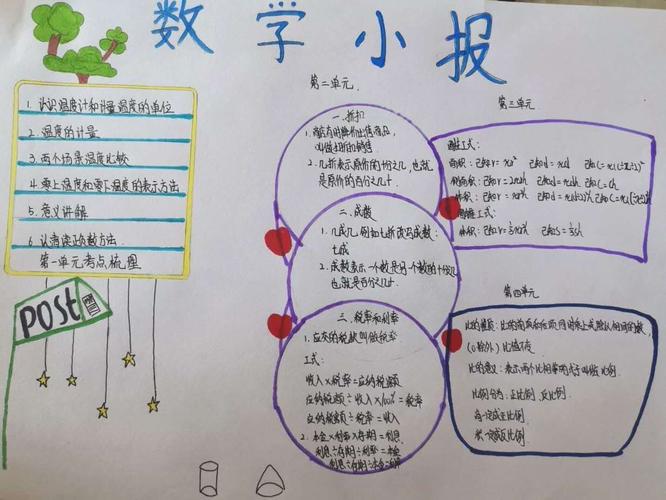 数学小报
1. 认识温度计和计量温度的单位
2. 温度的计量
3. 两个场景温度比较
4. 零上温度和零下温度的表示方法
5. 意义讲解
6. 认清读正负数方法
第一单元考点梳理
POST
第二单元
一. 折扣
1. 商店有时降价出售商品,
叫做打折销售
2. 几折表示原价的十分之几,也就
是原价的百分之几十.
二. 成数
1. 几成几,例如七折改写成数:
七成
2. 成数表示一个数是另一个数的十分之几
也就是百分之几十.
三. 税率和利率
1. 应交的税款叫做税率
公式:
收入×税率=应纳税额
应纳税额÷收入×100%=税率
应纳税额÷税率=收入
2. 本金×利率×存期=利息
利息÷存期÷利率=本金
利息÷存期÷本金=利率
第三单元
圆柱公式:
面积: 已知r=πr² 已知d=πd
侧面积: 已知r=2πrh 已知d=πdh 已知C=Ch
体积: 已知r=πr²h
圆锥公式:
体积: 已知r=⅓πr²h 已知S=⅓Sh
第四单元
比的性质: 比的前项和后项同时乘上或除以相同的数,
(0除外) 比值不变
比的意义: 表示两个比相等的式子叫做比例.
比例分为: 正比例, 反比例.
商一定成正比例.
积一定成反比例.